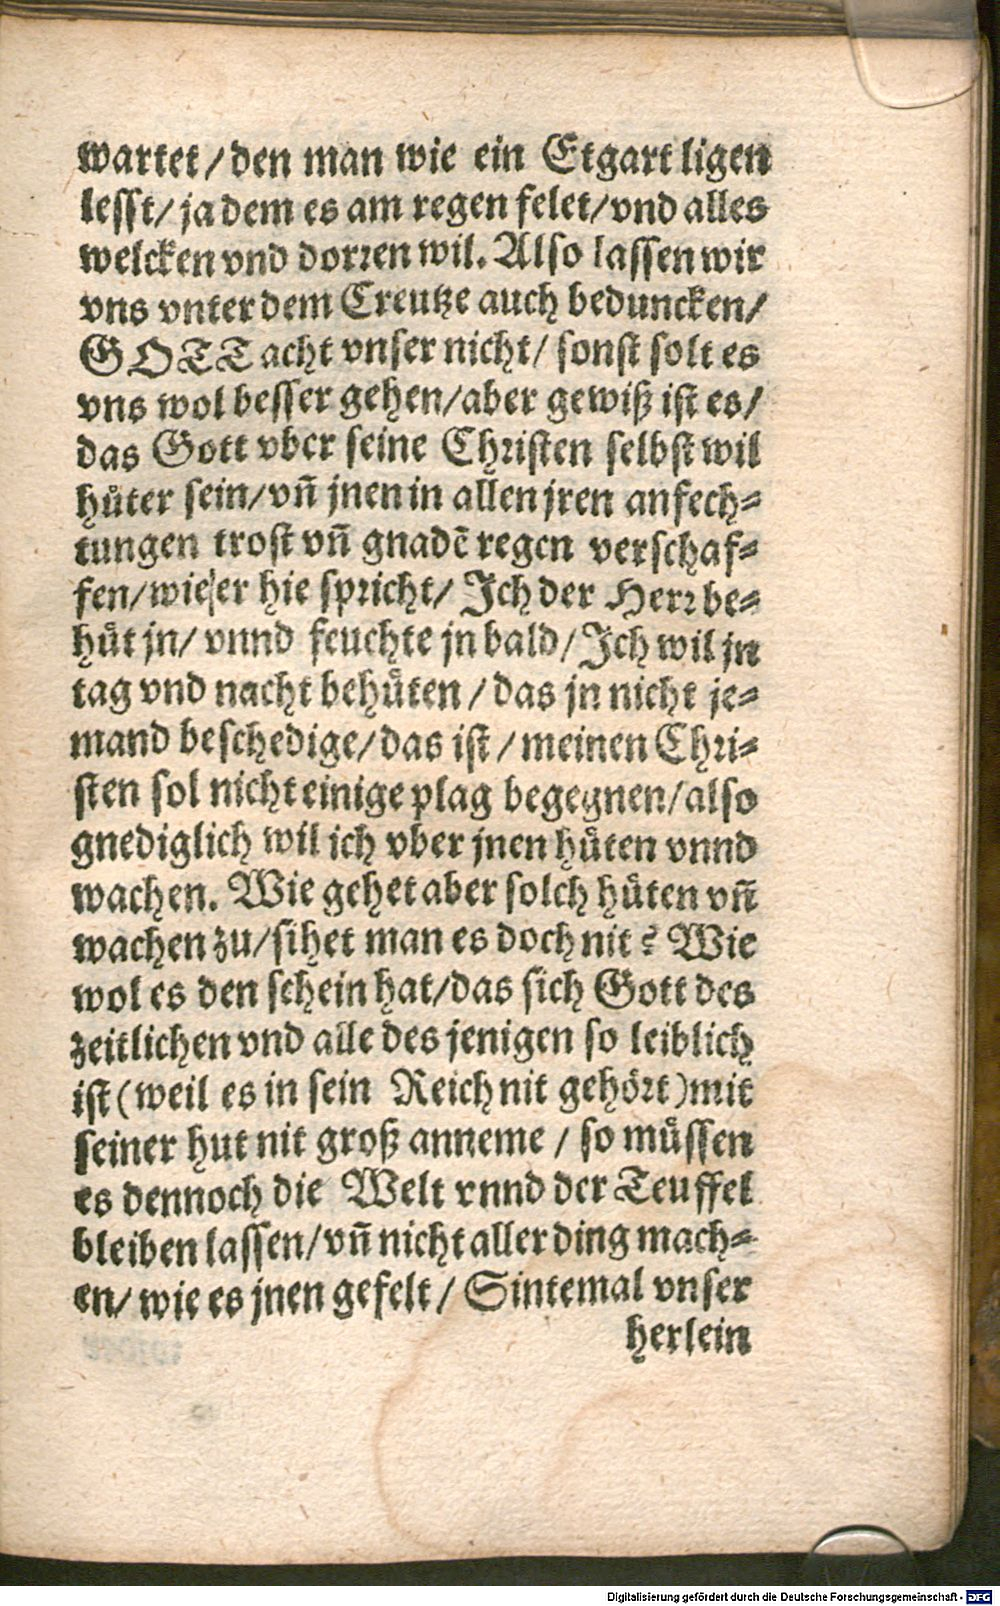 wartet / den man wie ein Etgart ligen
lesst / ja dem es am regen felet / vnd alles
welcken vnd dorꝛen wil. Also lassen wir
vns vnter dem Creutze auch beduncken /
GOTT acht vnser nicht / sonst solt es
vns wol besser gehen / aber gewiß ist es /
das Gott vber seine Chꝛisten selbst wil
huͤter sein / vñ jnen in allen jren anfech⸗
tungen trost vñ gnadẽ regen verschaf⸗
fen / wie er hie spꝛicht / Ich der Herꝛ be⸗
huͤt jn / vnnd feuchte jn bald / Ich wil jn
tag vnd nacht behuͤten / das jn nicht je⸗
mand beschedige / das ist / meinen Chꝛi⸗
sten sol nicht einige plag begegnen / also
gnediglich wil ich vber jnen huͤten vnnd
wachen. Wie gehet aber solch huͤten vñ
wachen zu / sihet man es doch nit? Wie
wol es den schein hat / das sich Gott des
zeitlichen vnd alle des jenigen so leiblich
ist (weil es in sein Reich nit gehöꝛt) mit
seiner hut nit groß anneme / so muͤssen
es dennoch die Welt vnnd der Teuffel
bleiben lassen / vñ nicht aller ding mach⸗
en / wie es jnen gefelt / Sintemal vnser
herlein
Digitalisierung gefördert durch die Deutsche Forschungsgemeinschaft - DFG